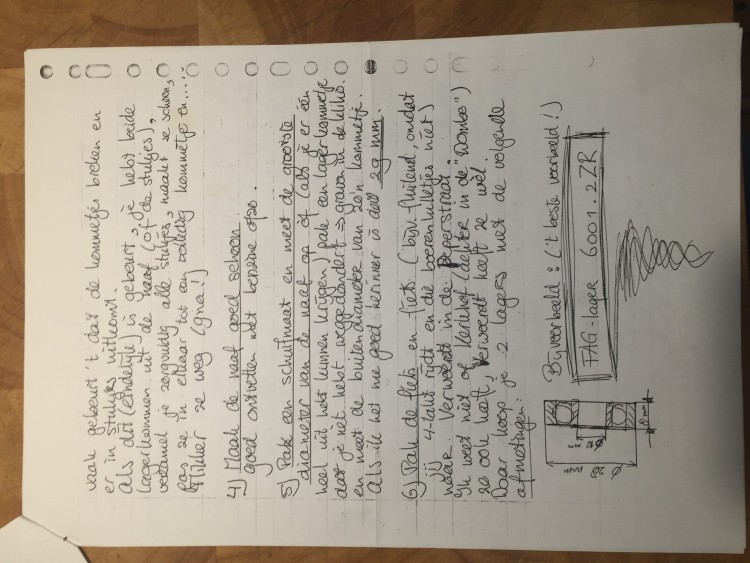 vaak gebeurt 't dat de kommetjes breken en
er in stukjes uitkomt.
Als dit (eindelijk) is gebeurt, je hebt beide
lagerkommen uit de naaf (of de stukjes),
verzamel je zorgvuldig alle stukjes, maakt ze schoon,
pas ze in elkaar tot een volledig kommetje en.....
Flikker ze weg (gna!)
4) Maak de naaf goed schoon
goed ontvetten met benzine ofzo.
5) Pak een schuifmaat en meet de grootste
diameter van de naaf op òf (als je er één
heel uit hebt kunnen krijgen) pak een lagerkommetje
dat je net hebt weggedondert => graven in de kliko.
en meet de buitendiameter van zo'n kommetje.
Als ik het me goed herinner is deze 28 mm.
6) Pak de fiets en fiets (bijv. fluitend, omdat
jij 4-takt rijdt en die boerenlulletjes niet)
naar Verwoerdt in de Peperstraat.
Ik weet niet of Kerkhof (achter in de "Wombos")
ze ook heeft, Verwoerdt heeft ze wèl.
Daar koop je 2 lagers met de volgende
afmetingen:
Bijvoorbeeld: ('t beste voorbeeld!)
FAG-lager 6001.2ZR
Ø 28 mm
Ø 12 mm
8 mm